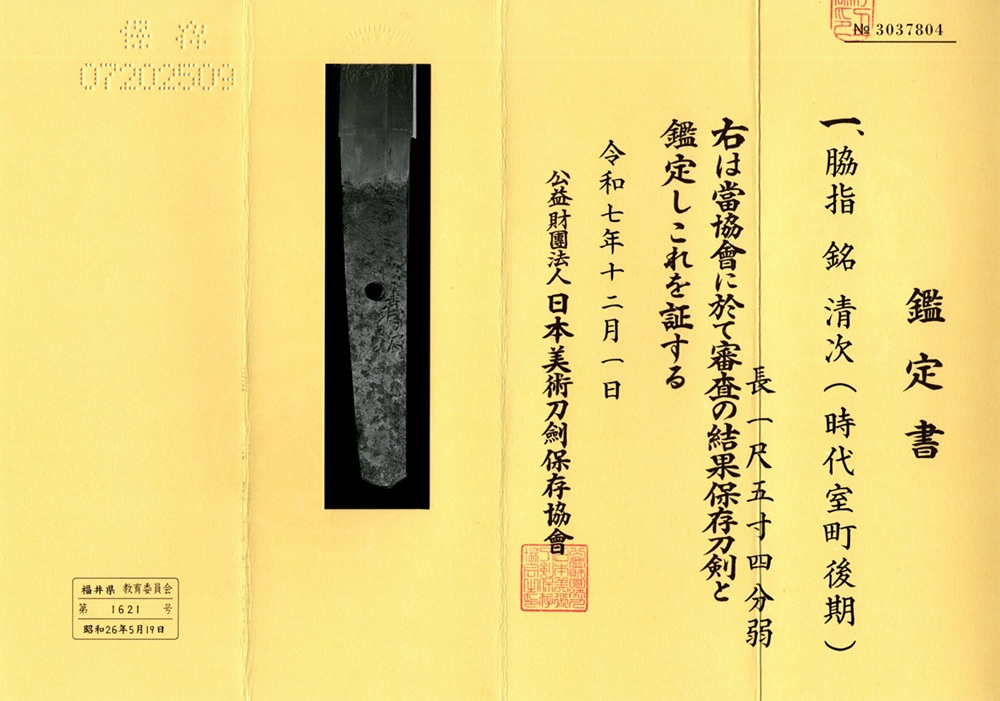 № 3037804
鑑定書
一、脇指 銘 清次(時代室町後期)
長一尺五寸四分弱
右は當協會に於て審査の結果保存刀剣と
鑑定しこれを証する
令和七年十二月一日
公益財團法人日本美術刀劍保存協會
清次
保存
07202509
福井県 教育委員会
第 1621 号
昭和26年5月19日